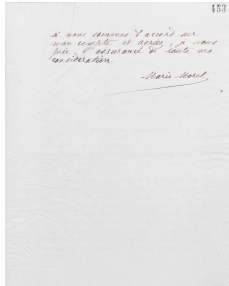 453
si nous sommes d'accord sur
mon compte et agréez, je vous
prie, l'assurance de toute ma
considération
Marie Morel